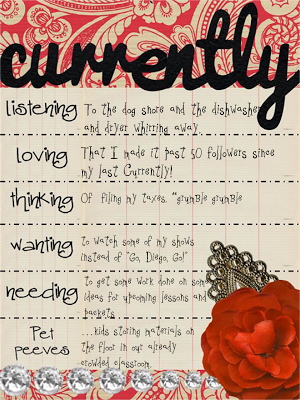 currently
listening
To the dog snore and the dishwasher
and dryer whirring away.
loving
That I made it past 50 followers since
my last Currently!
thinking
Of filing my taxes. *grumble grumble
wanting
to watch some of my shows
instead of "Go, Diego, Go!"
needing
to get some work done on some
ideas for upcoming lessons and
packets
Pet
peeves
...kids storing materials on
the floor in our already
crowded classroom.